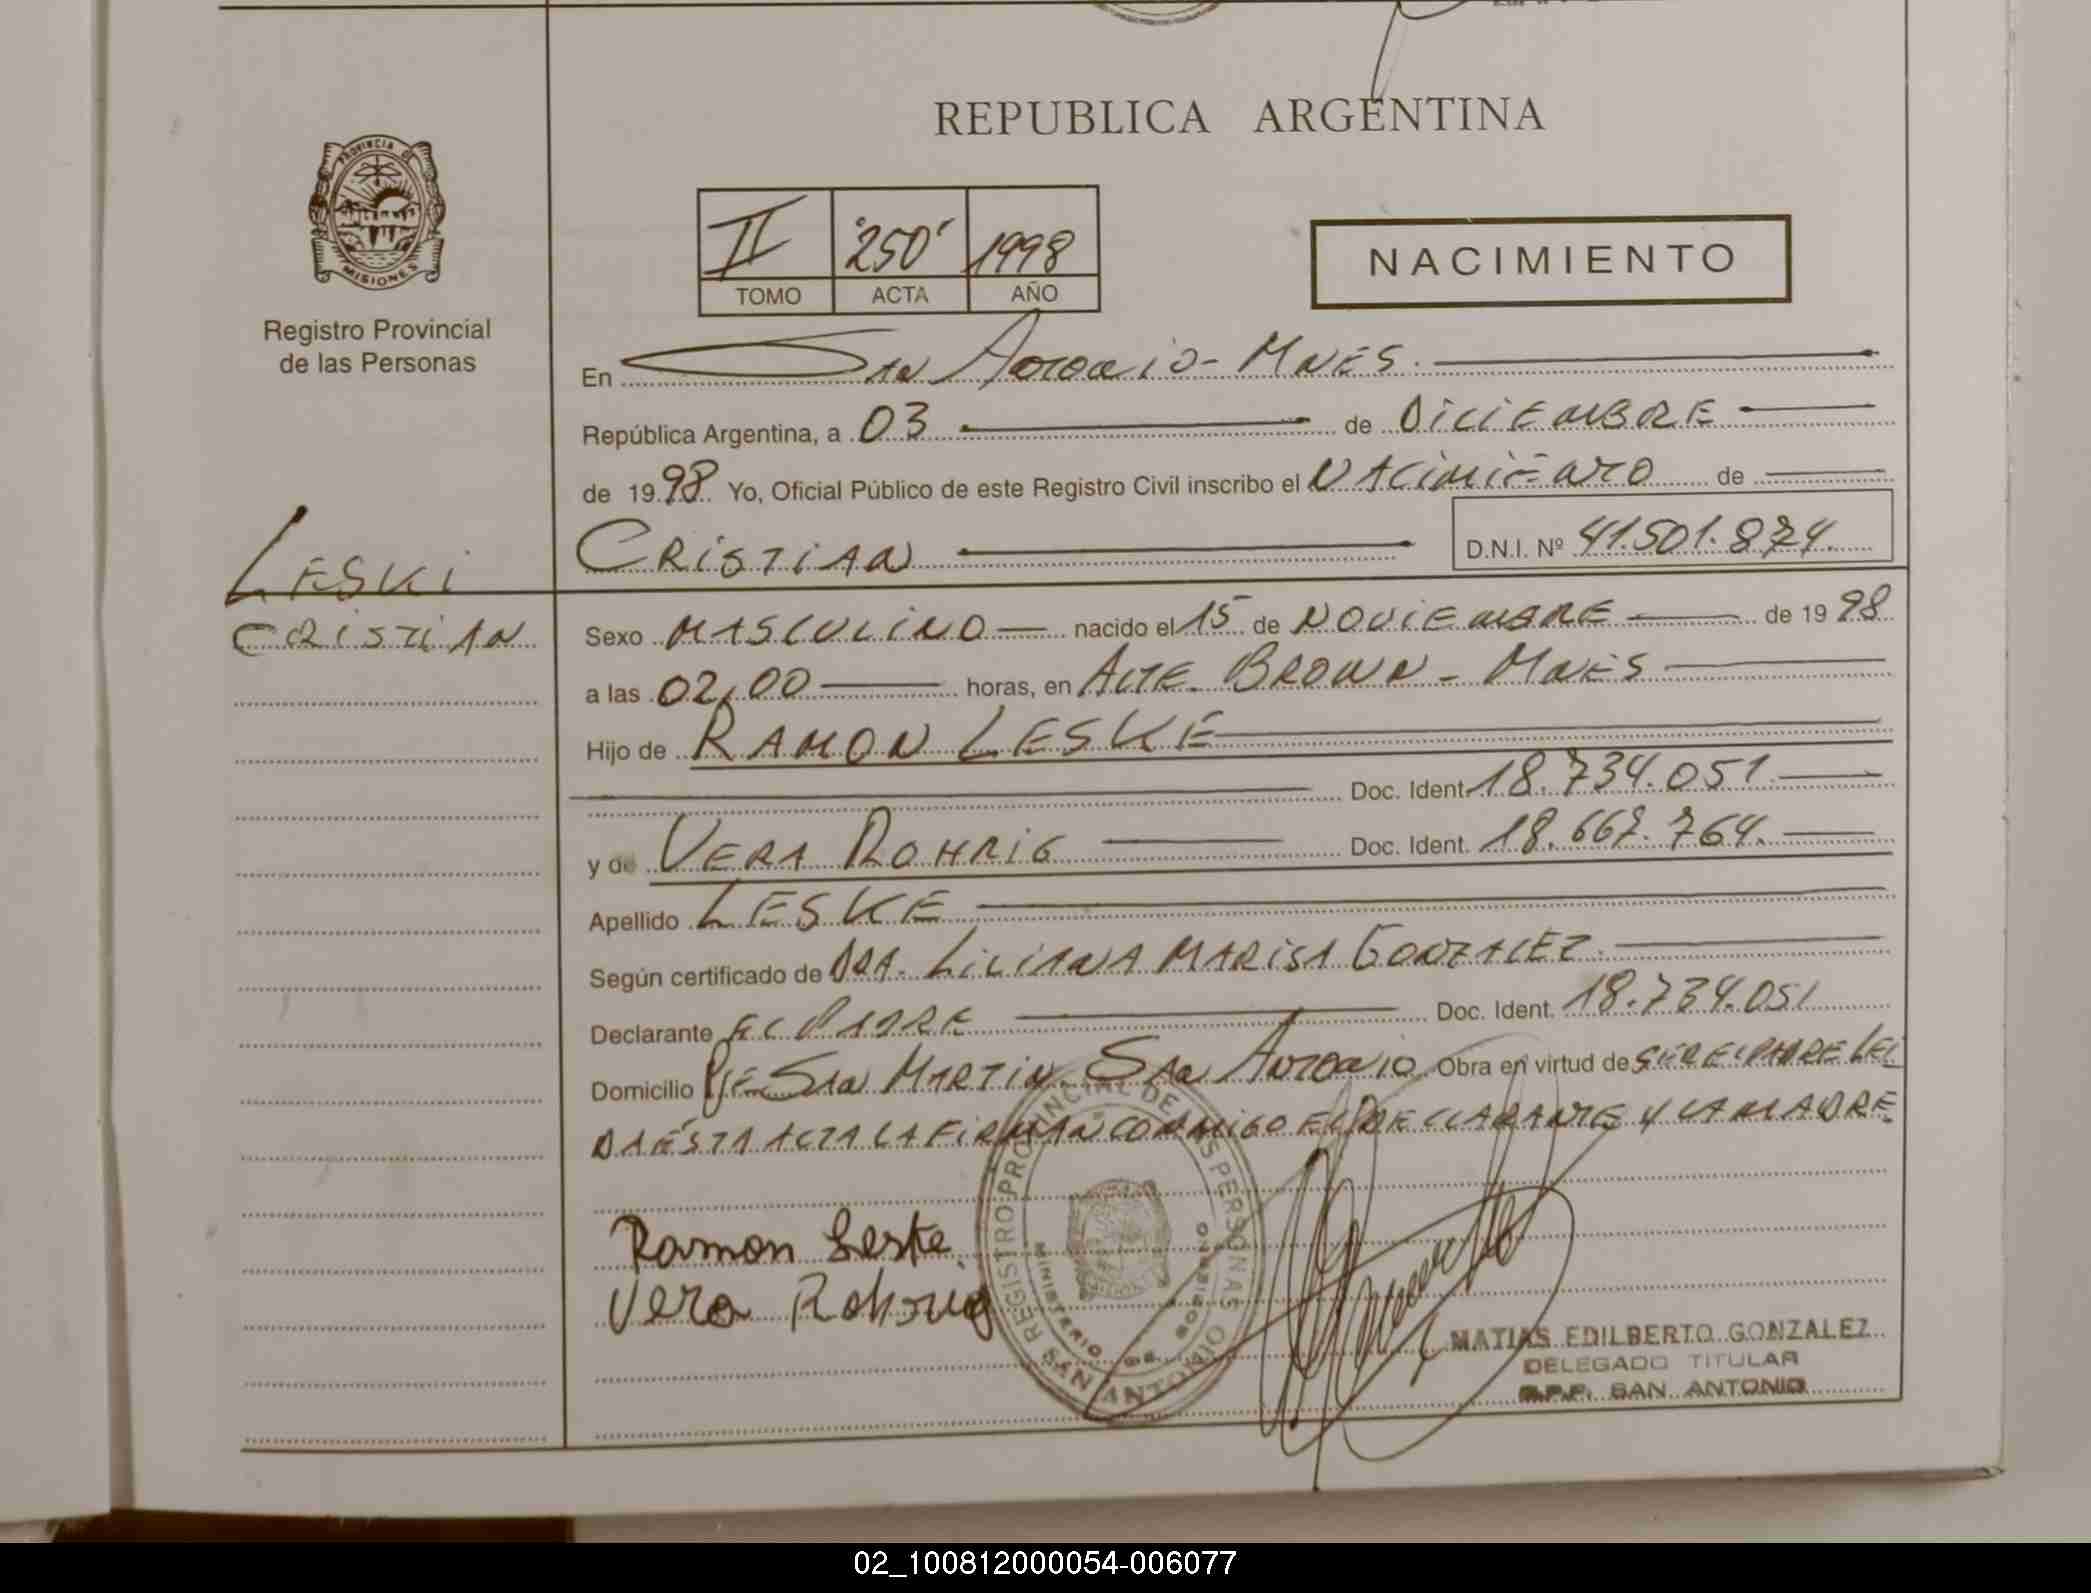 REPUBLICA ARGENTINA
PROVINCIA DE
MISIONES
Registro Provincial
de las Personas
II '250' 1998
TOMO ACTA AÑO
NACIMIENTO
En San Antonio - Mnes.
República Argentina, a 03 de Diciembre
de 1998 Yo, Oficial Público de este Registro Civil inscribo el Nacimiento de
Cristian D.N.I. Nº 41.501.874.
Leski
Cristian
Sexo Masculino nacido el 15 de Noviembre de 1998
a las 02,00 horas, en Alte. Brown - Mnes
Hijo de Ramon Leske
Doc. Ident. 18.734.051
y de Vera Rohrig Doc. Ident. 18.667.764.
Apellido Leske
Según certificado de Dra. Liliana Marisa Gonzalez.
Declarante el Padre Doc. Ident. 18.734.051
Domicilio Pje San Martin. San Antonio Obra en virtud de ser el padre Lei
da ésta acta la firman conmigo el declarante y la madre
Ramon Leske.
Vera Rohrig
REGISTRO PROVINCIAL DE LAS PERSONAS
MINISTERIO DE GOBIERNO
SAN ANTONIO
MATIAS EDILBERTO GONZALEZ
DELEGADO TITULAR
R.P.P. SAN ANTONIO
02_100812000054-006077